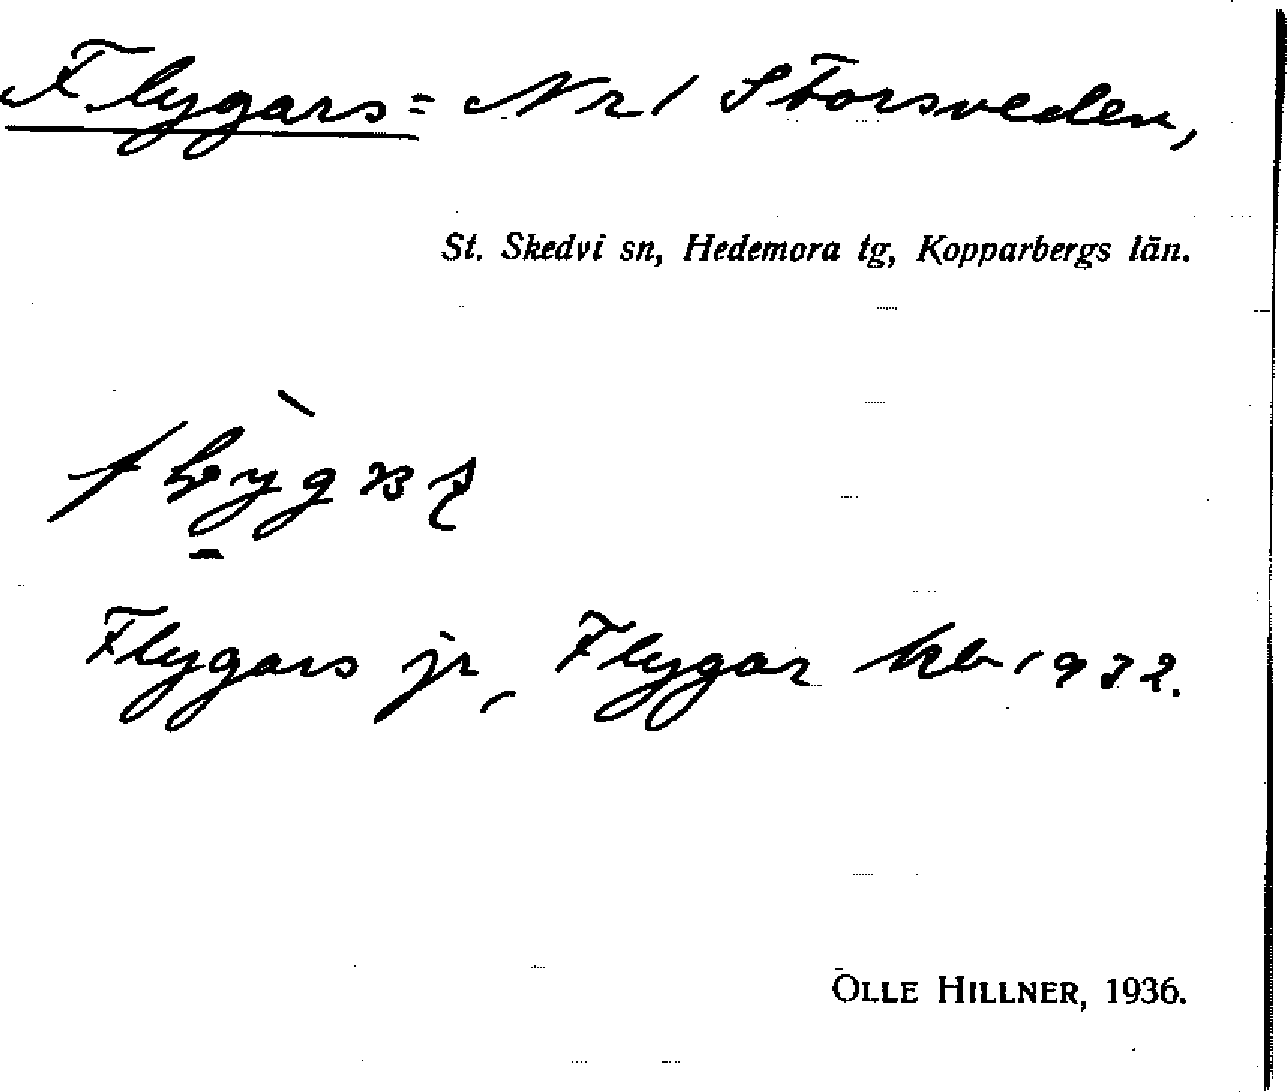 Flygars = Nr 1 Storsveden,
St. Skedvi sn, Hedemora tg, Kopparbergs län.
Flygars jr, Flygar kb 1932.
OLLE HILLNER, 1936.